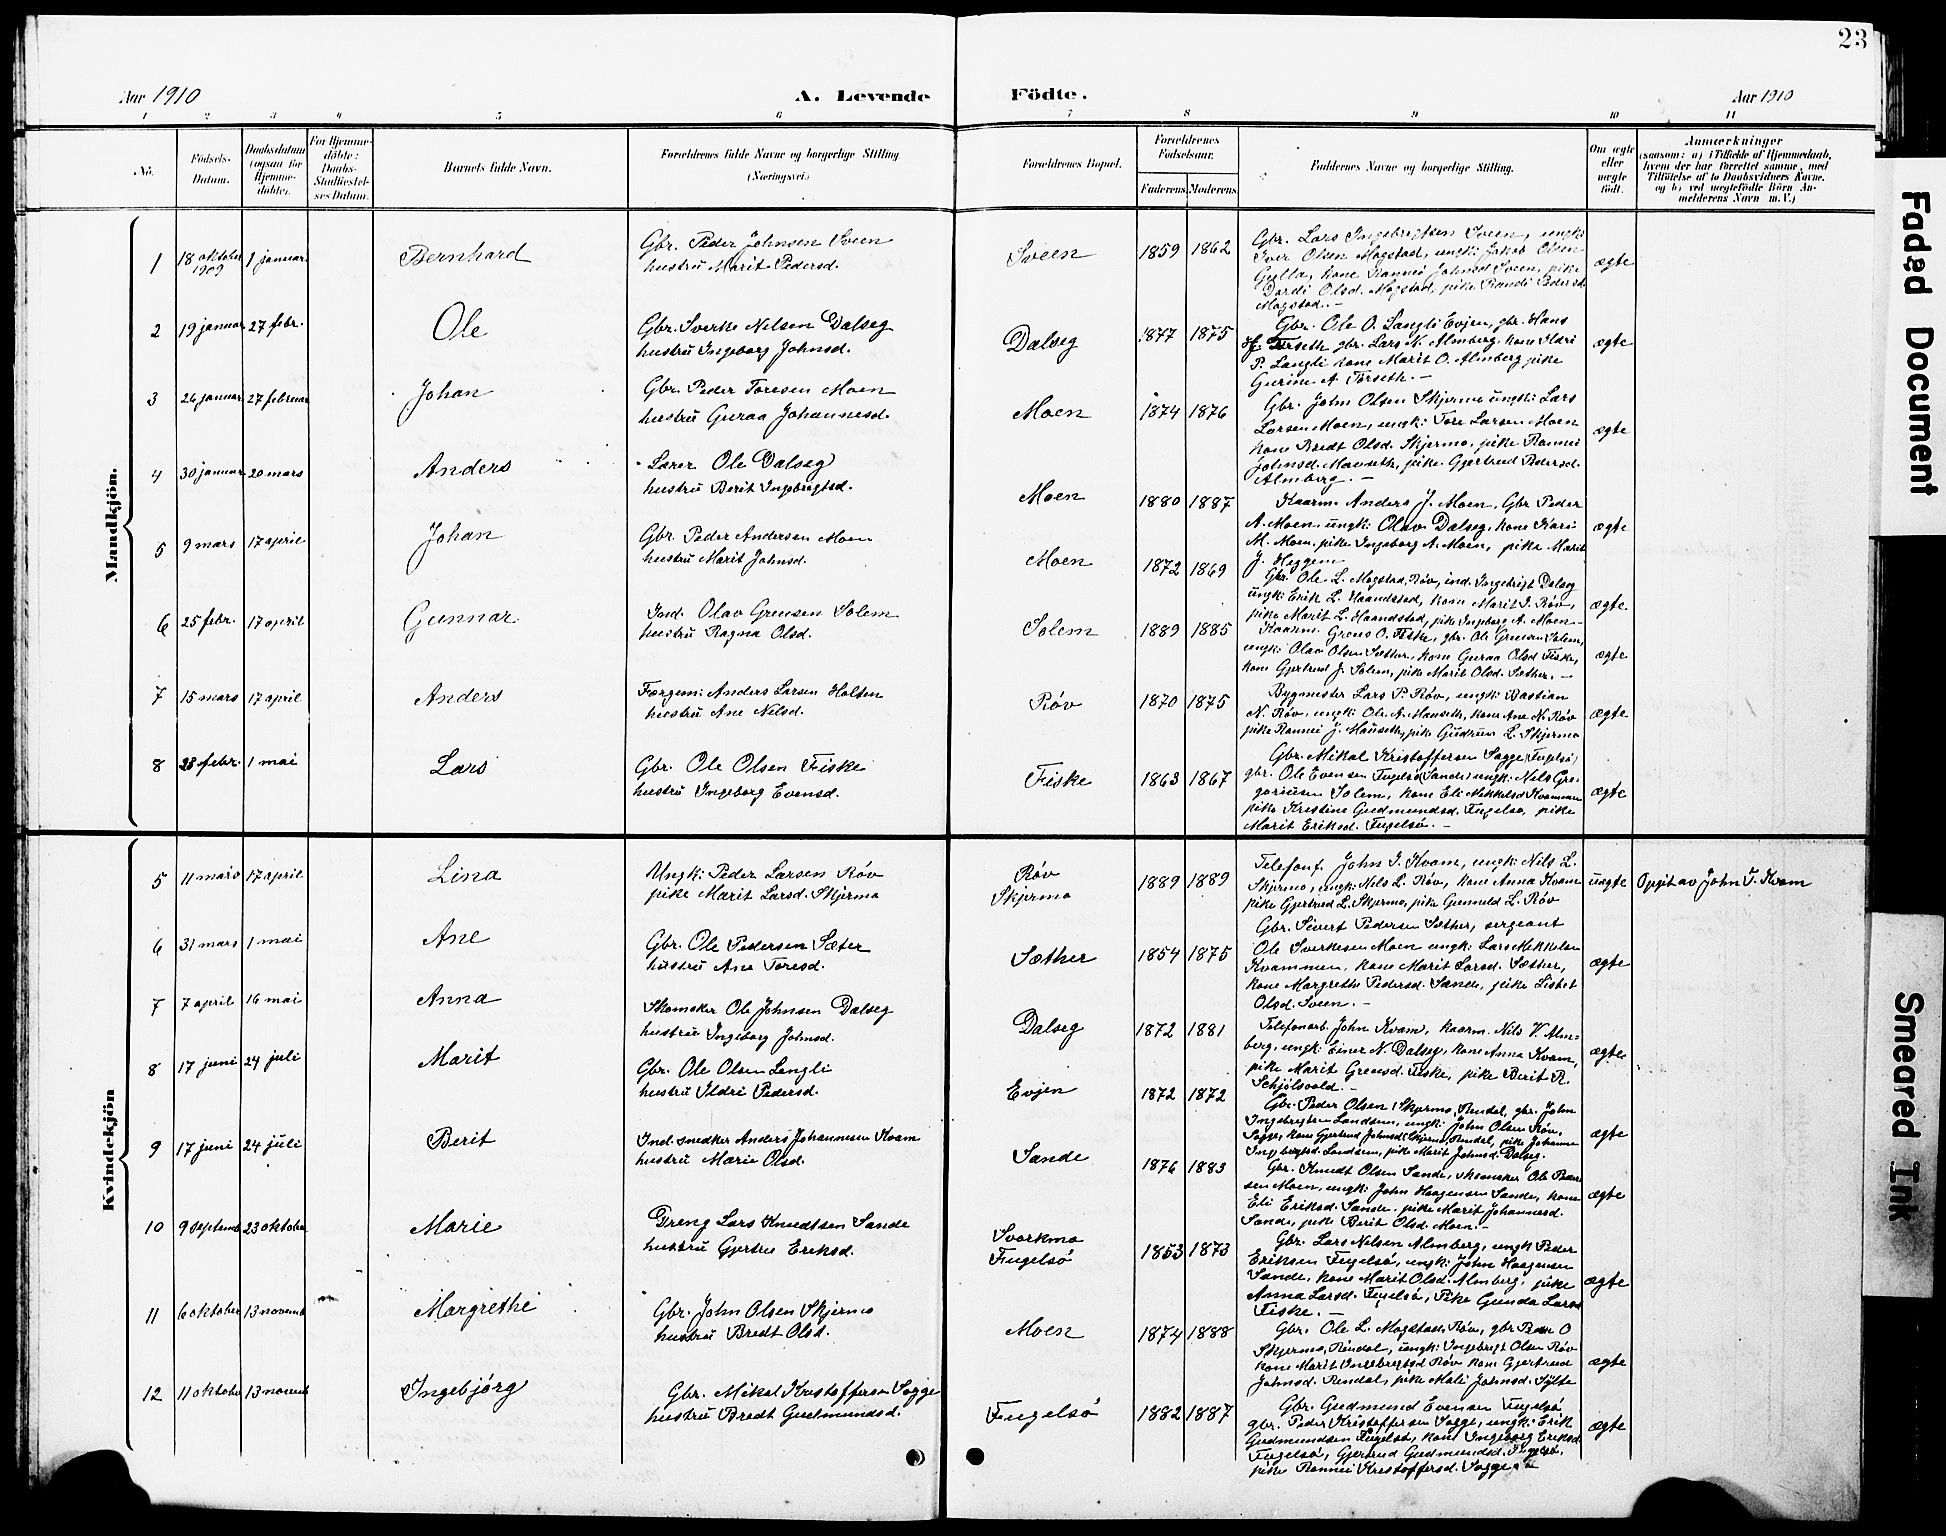 23
Aar 1910
A. Levende
Födte.
Aar 1910
1 2 3 4 5 6 7 8 9 10 11
No.
Födsels-
Datum.
Daabsdatum
(ogsaa for
Hjemme-
døbte).
For Hjemme-
döbte:
Daabs-
Stadfæstel-
ses Datum.
Barnets fulde Navn.
Forældrenes fulde Navne og borgerlige Stilling
(Næringsvei.)
Forældrenes Bopæl.
Forældrenes
Fødselsaar.
Faderens. Moderens.
Faddernes Navne og borgerlige Stilling.
Om ægte
eller
uægte
født.
Anmærkninger
(saasom: a) i Tilfælde af Hjemmedaab,
hvem der har forrettet samme, med
Tilføielse af to Daabsvidners Navne.
og b) ved uægtefödte Börn An-
melderens Navn m.V.)
Mandkjön.
1 18 oktober 1909 1 januar Bernhard
Gbr. Peder Johnsen Sveen
hustru Marit Pedersd.
Sveen 1859 1862
Gbr. Lars Ingebregtsen Sveen, ungk:
Iver Olsen Mogstad, ungk: Jakob Olsen
Gulla, kone Rannei Johnsd Sveen, pike
Dordi Olsd. Mogstad, pike Randi Pedersd.
Mogstad.-
ægte
2 19 januar 27 febr. Ole
Gbr. Sverke Nilsen Dalseg
hustru Ingeborg Johnsd.
Dalseg 1877 1875
Gbr. Ole O. Langli Evjen, gbr. Hans
Torseth gbr. Lars N. Almberg, kone Ildri
P. Langli kone Marit O. Almberg pike
Gurine A Torseth.-
ægte
3 26 januar 27 februar Johan
Gbr. Peder Toresen Moen
hustru Guraa Johannesd.
Moen 1874 1876
Gbr. John Olsen Skjermo ungk: Lars
Larsen Moen, ungk: Tore Larsen Moen
kone Bredt Olsd. Skjermo, pike Rannei
Johnsd. Hauseth, pike Gjertrud Pedersd.
Almberg. -
ægte
4 30 januar 20 mars Anders
Lærer Ole Dalseg
hustru Berit Ingebregtsd.
Moen 1880 1887
Kaarm. Anders J. Moen, Gbr Peder
A. Moen ungk: Olav Dalseg, kone Kari
M. Moen, pike Ingeborg A. Moen, pike Marit
J. Heggem
ægte
5 9 mars 17 april Johan
Gbr. Peder Andersen Moen
hustru Marit Johnsd.
Moen 1872 1869
Gbr. Ole L. Mogstad, Røv, ind. Ingebrigt Dalseg
ungk: Erik L. Haandstad, kone Marit I. Røv,
pike Marit L. Haandstad, pike Ingeborg A. Moen-
ægte
6 25 febr. 17 april Gunnar
Ind. Olav Grensen Solem
hustru Ragna Olsd.
Solem 1889 1885
Kaarm. Greus O. Fiske, gbr. Ole Grensen Solem,
ungk: Olav Olsen Sæther, kone Guraa Olsd Fiske,
kone Gjertrud J. Solem, pike Marit Olsd. Sæther. -
ægte
7 15 mars 17 april Anders
Færgem: Anders Larsen Holten
hustru Ane Nilsd.
Røv 1870 1875
Bygmester Lars P. Røv, ungk: Bastian
N. Røv, ungk: Ole A. Hauseth, kone Ane N. Røv
pike Rannei J. Hauseth, pike Gudrun L. Skjermo
ægte
8 28 febr. 1 mai Lars
Gbr. Ole Olsen Fiske
hustru Ingeborg Evensd.
Fiske 1863 1867
Gbr. Mikal Kristoffersen Sogge (Fugelsö)
gbr. Ole Evensen Fugelsö (Sande) ungk: Nils Gre-
goriusen Solem, kone Eli Mekkelsd Kvammen
pike Kristine Gudmundsd. Fugelsö, pike
Marit Eriksd. Fugelsö. -
ægte
Kvindekjön
5 11 mars 17 april Lina
Ungk: Peder Larsen Röv
pike Marit Larsd. Skjermo
Röv
Skjermo 1889 1889
Telefonf. John I. Kvam, ungk: Nils L.
Skjermo, ungk: Nils L. Røv, kone Anna Kvam
pike Gjertrud L. Skjermo, pike Gunneld L. Røv
uægte Opgit av John I. Kvam
6 31 mars 1 mai Ane
Gbr. Ole Pedersen Sæter
hustru Ane Toresd.
Sæther 1854 1875
Gbr. Sivert Pedersen Sæther, sergeant
Ole Sverkesen Moen ungk: Lars Mekkelsen
Kvammen, kone Marit Larsd. Sæther,
kone Margrethe Pedersd. Sande, pike Lisbet
Olsd. Sveen. -
ægte
7 7 april 16 mai Anna
Skomaker Ole Johnsen Dalseg
hustru Ingeborg Johnsd.
Dalseg 1872 1881
Telefonarb. John Kvam, kaarm. Nils V. Alm-
berg, ungk: Einer N. Dalseg, kone Anna Kvam,
pike Marit Grensd. Fiske, pike Berit R.
Schjölsvold. -
ægte
8 17 juni 24 juli Marit
Gbr. Ole Olsen Langli
hustru Ildri Pedersd.
Evjen 1872 1872
Gbr. Peder Olsen Skjermo, Rendal, gbr. John
Ingebregtsen Landsem, ungk: John Olsen Röv,
Sogge, kone Gjertrud Johnsd Skjermo, Rendal, pike Johanne
Ingebregtsd. Landsem, pike Marit Johnsd. Dalseg.
ægte
9 17 juni 24 juli Berit
Ind. snedker Anders Johannesen Kvam
hustru Marie Olsd.
Sande 1876 1883
Gbr. Knudt Olsen Sande, skomaker Ole Peder
sen Moen, ungk: John Haagensen Sande, kone
Eli Eriksd. Sande, pike Marit Johannesd.
Sande, pike Berit Olsd. Moen. -
ægte
10 9 septemb 23 oktober Marie
Dreng Lars Knudtsen Sande
hustru Gjertru Eriksd.
Svorkmo
Fugelsö 1853 1873
Gbr. Lars Nilsen Almberg, ungk Peder
Eriksen Fugelsö, ungk: John Haagensen
Sande, kone Marit Olsd. Almberg, pike
Anna Larsd. Fugelsö, Pike Gunda Larsd
Fiske. -
ægte
11 6 oktober 13 novemb Margrethe
Gbr. John Olsen Skjermo
hustru Bredt Olsd.
Moen 1874 1888
Gbr. Ole L. Mogstad, Röv, gbr Peder O
Skjermo, Rendal, ungk: Ingebregt Olsen Röv
kone Marit Ingebregtsd Röv kone Gjertrud
Johnsd. Rendal, pike Mali Johnsd. Sylte
ægte
12 11 oktober 13 novemb Ingebjörg
Gbr. Mikal Kristoffersen Sogge
hustru Bredt Gudmundsd.
Fugelsö 1882 1887
Gbr. Gudmund Evensen Fugelsö
gbr. Peder Kristoffersen Sogge, ungk: Erik
Gudmundsen Fugelsö, kone Ingeborg Eriksd
Fugelsö, Gjertrud Gudmundsd. Fugelsö,
pike Rannei Kristoffersd. Sogge
ægte
Fadgd Document
Smeared Ink